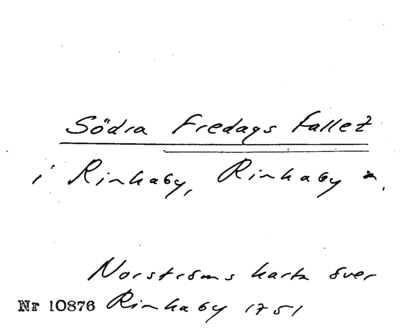 Södra Fredags fallet
i Rinkaby, Rinkaby
Norströms karta över
Nr 10876 Rinkaby 1751